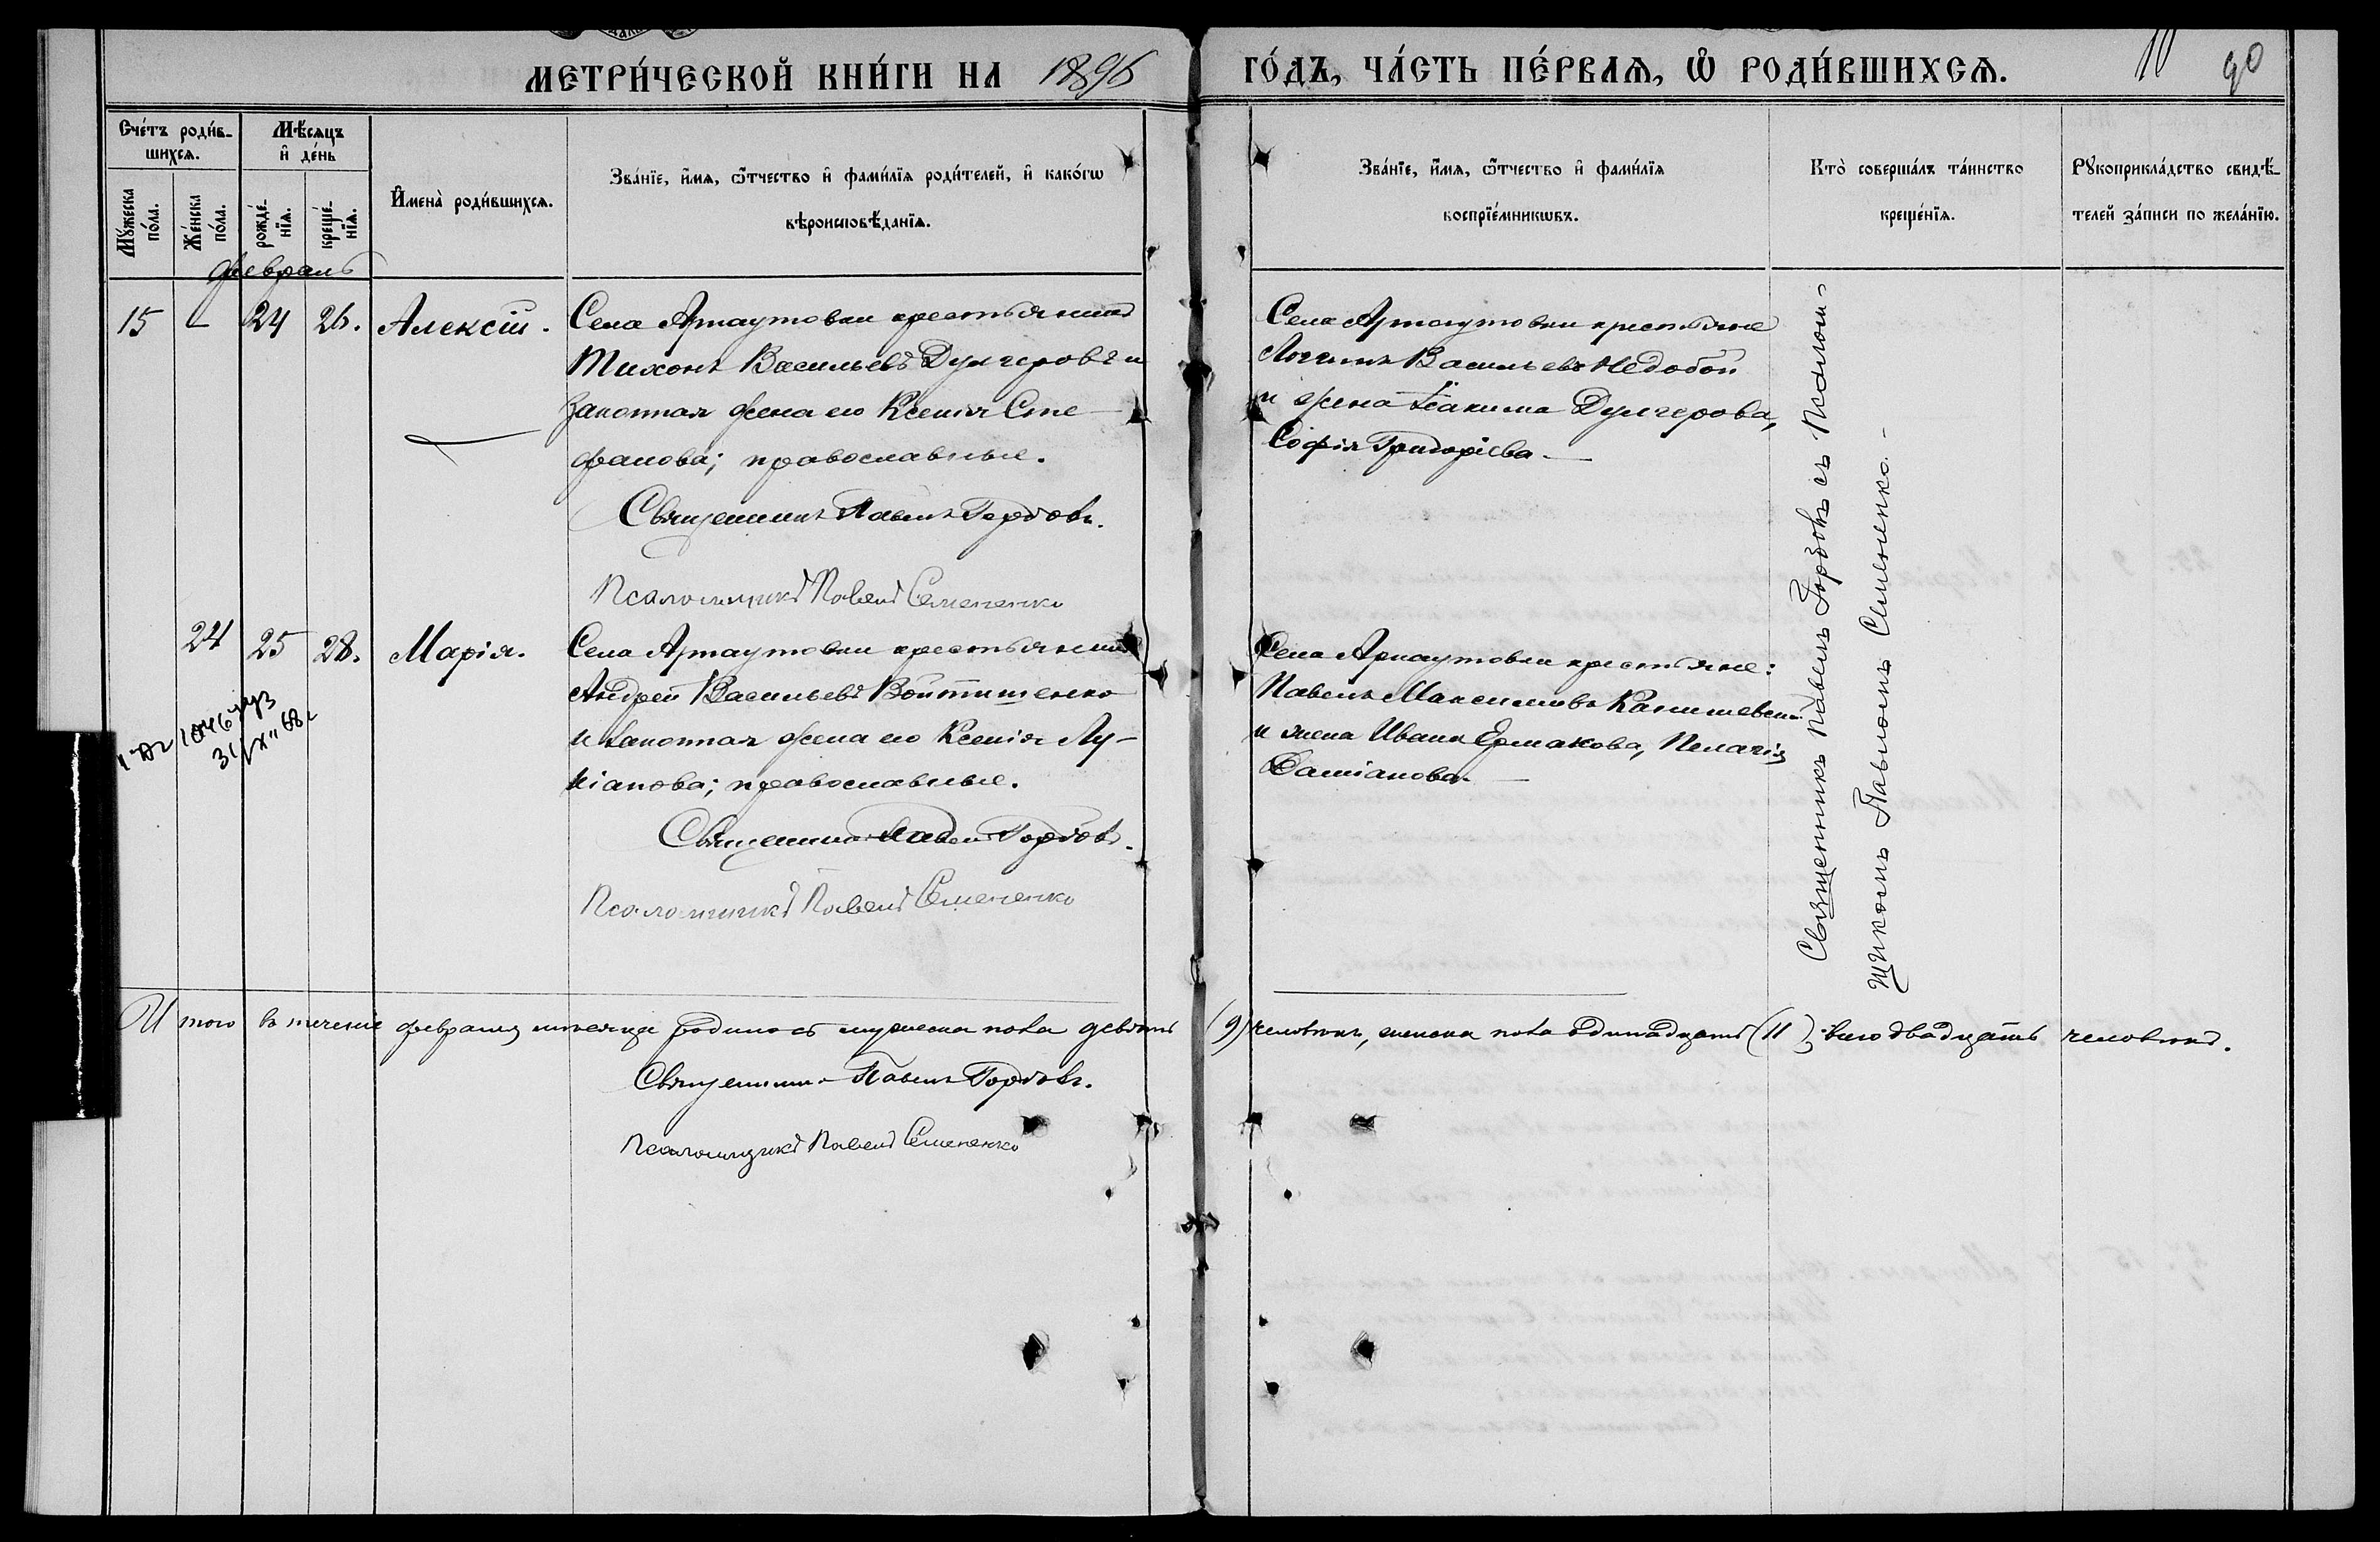 МЕТРИ́ЧЕСКОЙ КНИ́ГИ НА 1896 ГО́ДЪ, ЧА́СТЬ ПЕ́РВАѦ, Ѿ РОДИ́ВШИХСѦ.
10 90
Сче́тъ роди́в-
шихсѧ.
Мꙋ́жеска по́ла.
Же́нска по́ла.
Мѣ́сѧцъ и҆ де́нь
рожде́-нїѧ.
креще́-нїѧ.
И҆мена̀ роди́вшихсѧ.
Зва́нїе, и҆́мѧ, ѻ҆́тчество и҆ фами́лїѧ роди́телей, и҆ како́гѡ
вѣроисповѣ́данїѧ.
Зва́нїе, и҆́мѧ, ѻ҆́тчество и҆ фами́лїѧ
воспрїе́мникѡвъ.
Кто̀ соверша́лъ та́инство
креще́нїѧ.
Рꙋкоприкла́дство свидѣ́-
телей за́писи по жела́нїю.
февраль
15 – 24 26. Алексій.
Села Арнаутовки крестьянинъ
Тихонъ Васильевъ Дулгеровъ и
законная жена его Ксенія Сте-
фанова; православные.
Священникъ Павелъ Гордовъ.
Псаломщикъ Павелъ Семененко
Села Арнаутовки крестьяне
Логинъ Васильевъ Недобой
и жена Іоакима Дулгерова,
Софія Григоріева
24 25 28. Марія.
Села Арнаутовки крестьянинъ
Андрей Васильевъ Войтишенко
и законная жена его Ксенія Лу-
кіанова; православные.
Священникъ Павелъ Гордовъ.
Псаломщикъ Павелъ Семененко
Села Арнаутовки крестьяне:
Павелъ Максимовъ
и жена Ивана Ермакова, Пелагія
Даміанова
Священникъ Павелъ Гордовъ съ Псалом-
щикомъ Павломъ Семененко.
Итого въ теченіе февраля мѣсяца родилось мужеска пола девять (9) человѣкъ, женска пола одинадцать (11); всего двадцать человѣкъ.
Священникъ Павелъ Гордовъ.
Псаломщикъ Павелъ Семененко